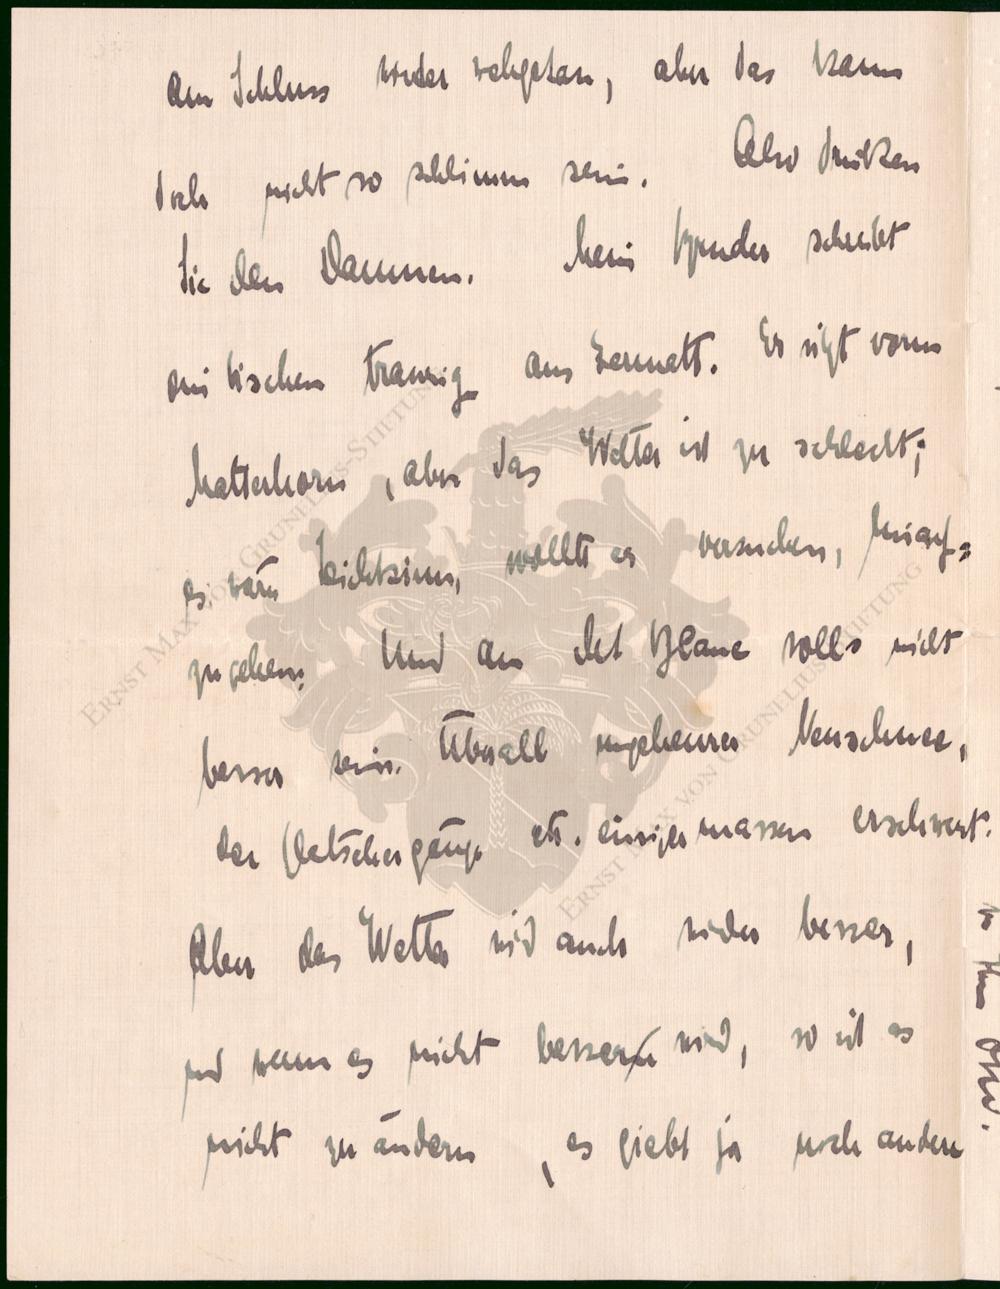 am Schluss wieder wehgetan, aber das kann
doch nicht so schlimm sein. Also drücken
Sie den Daumen. Mein Bruder schreibt
ein bischen traurig aus Zermatt. Er sitzt vorm
Matterhorn, aber das Wetter ist zu schlecht;
es wäre Leichtsinn, wollte er versuchen, hinauf=
zugehen. Und am Blanc solls nicht
besser sein. Überall ungeheurer Neuschnee,
der Gletschergänge etc. einigermassen erschwert.
Aber das Wetter wird auch wieder besser,
und wenn es nicht besser wird, so ist es
nicht zu ändern, es giebt ja noch andere
ERNST MAX VON GRUNELIUS-STIFTUNG
ERNST MAX VON GRUNELIUS-STIFTUNG